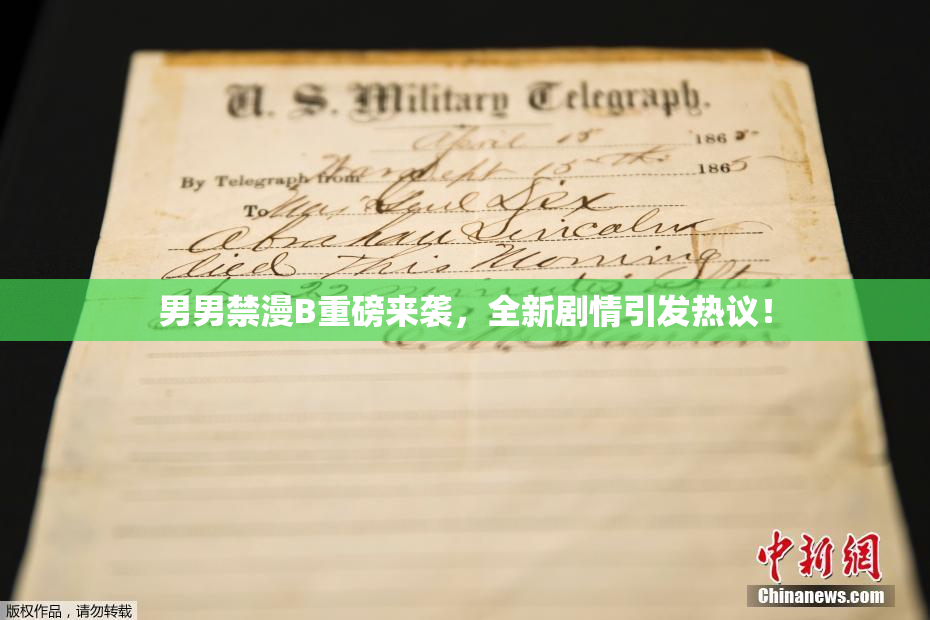 U. S. Military Telegraph.
April 15 1865
By Telegraph from War Dept 15th 1865
To Maj Genl Dix
Abraham Lincoln
died This Morning
at 22 minutes after
男男禁漫B重磅来袭，全新剧情引发热议！
版权作品，请勿转载
中新网
Chinanews.com